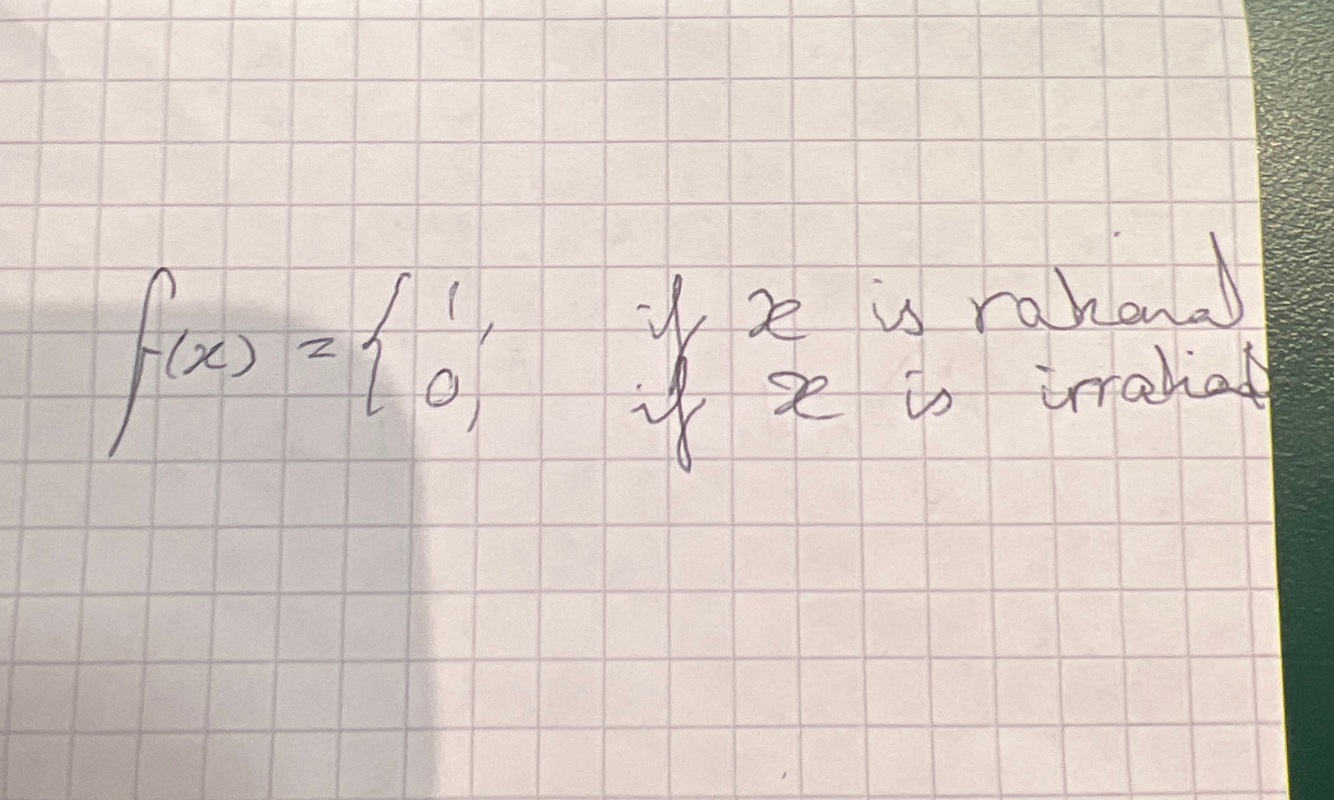 f(x) = { 1, if x is rational
0, if x is irrational